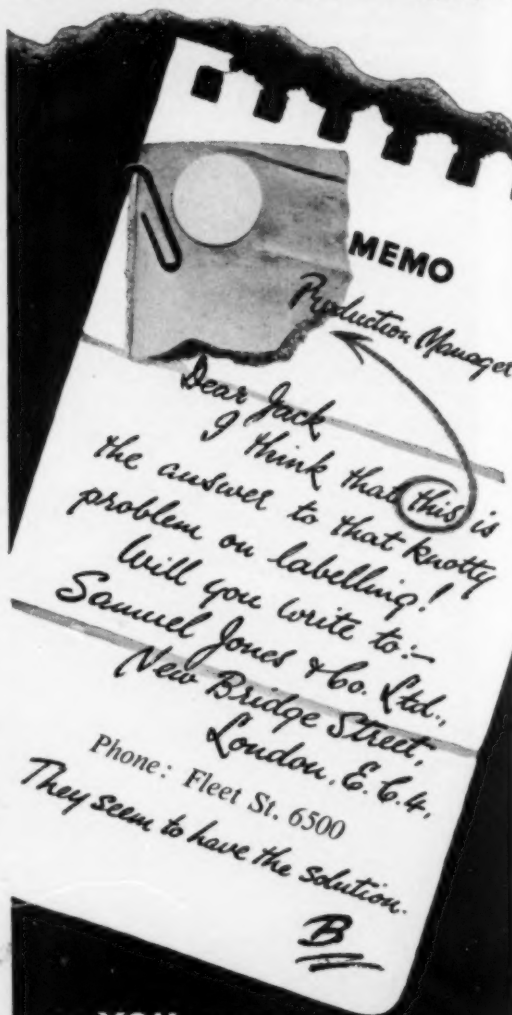 MEMO
Production Manager
Dear Jack
I think that this is
the answer to that knotty
problem on labelling!
Will you write to:-
Samuel Jones & Co. Ltd.,
New Bridge Street,
London. E.C.4.
Phone: Fleet St. 6500
They seem to have the solution.
B